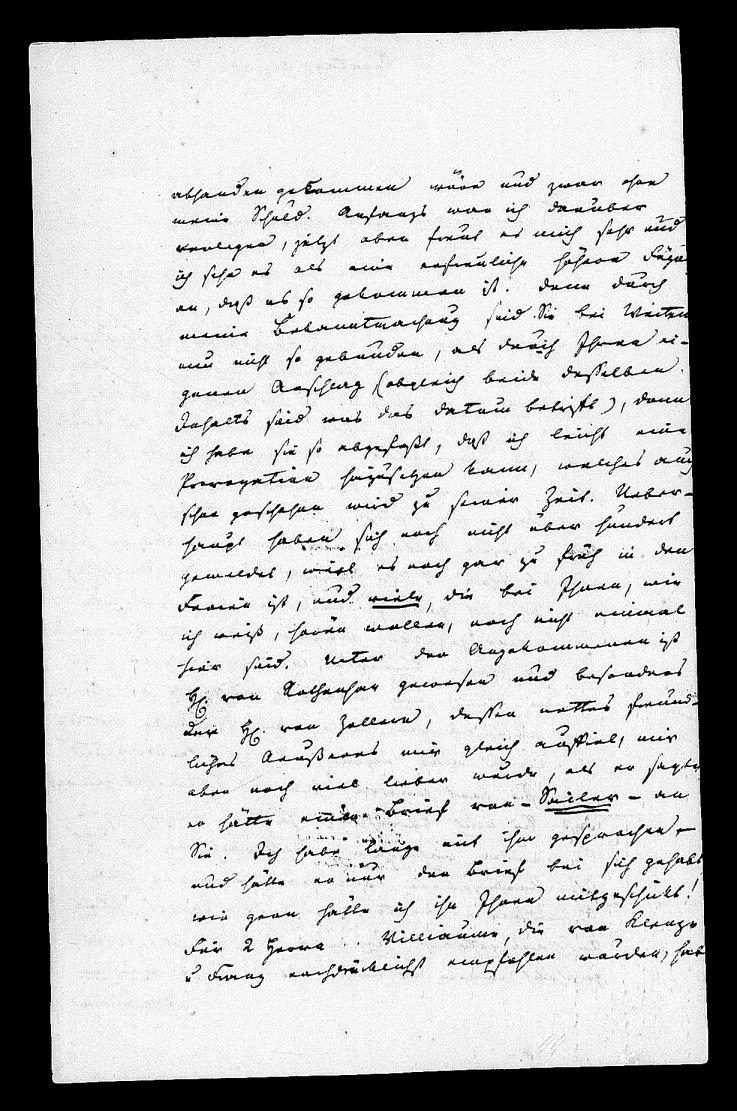 abhanden gekommen wäre und zwar ohne
meine Schuld. Anfangs war ich darüber
verlegen, jetzt aber freut es mich sehr und
ich sehe es als eine erfreuliche höhere Fügu
an, daß es so gekommen ist. Denn durch
meine Bekanntmachung sind Sie bei Weitem
nun nicht so gebunden, als durch Ihren ei-
genen Anschlag (obgleich beide desselben
Inhalts sind was das datum betrifft), denn
ich habe sie so abgefaßt, daß ich leicht eine
Prorogation hinzusetzen kann, welches auch
schon geschehen wird zu seiner Zeit. Ueber-
haupt haben sich noch nicht über hundert
gemeldet, weil es noch gar zu früh in den
Ferien ist, und viele, die bei Ihnen, wie
ich weiß, hören wollen, noch nicht einmal
hier sind. Unter den Angekommenen ist
H. von Rothenhan gewesen und besonders
der H. von Zellern, dessen nettes freund-
liches Aeußeres mir gleich auffiel, mir
aber noch viel lieber wurde, als er sagte,
er hätte einen Brief von - Sailer - an
Sie. Ich habe lange mit ihm gesprochen
und hätte er nur den Brief bei sich gehabt
wie gern hätte ich ihn Ihnen mitgeschickt!
Für 2 Herrn .. Villiaume, die von Klenze
u Franz nachdrücklichst empfohlen wurden, hab